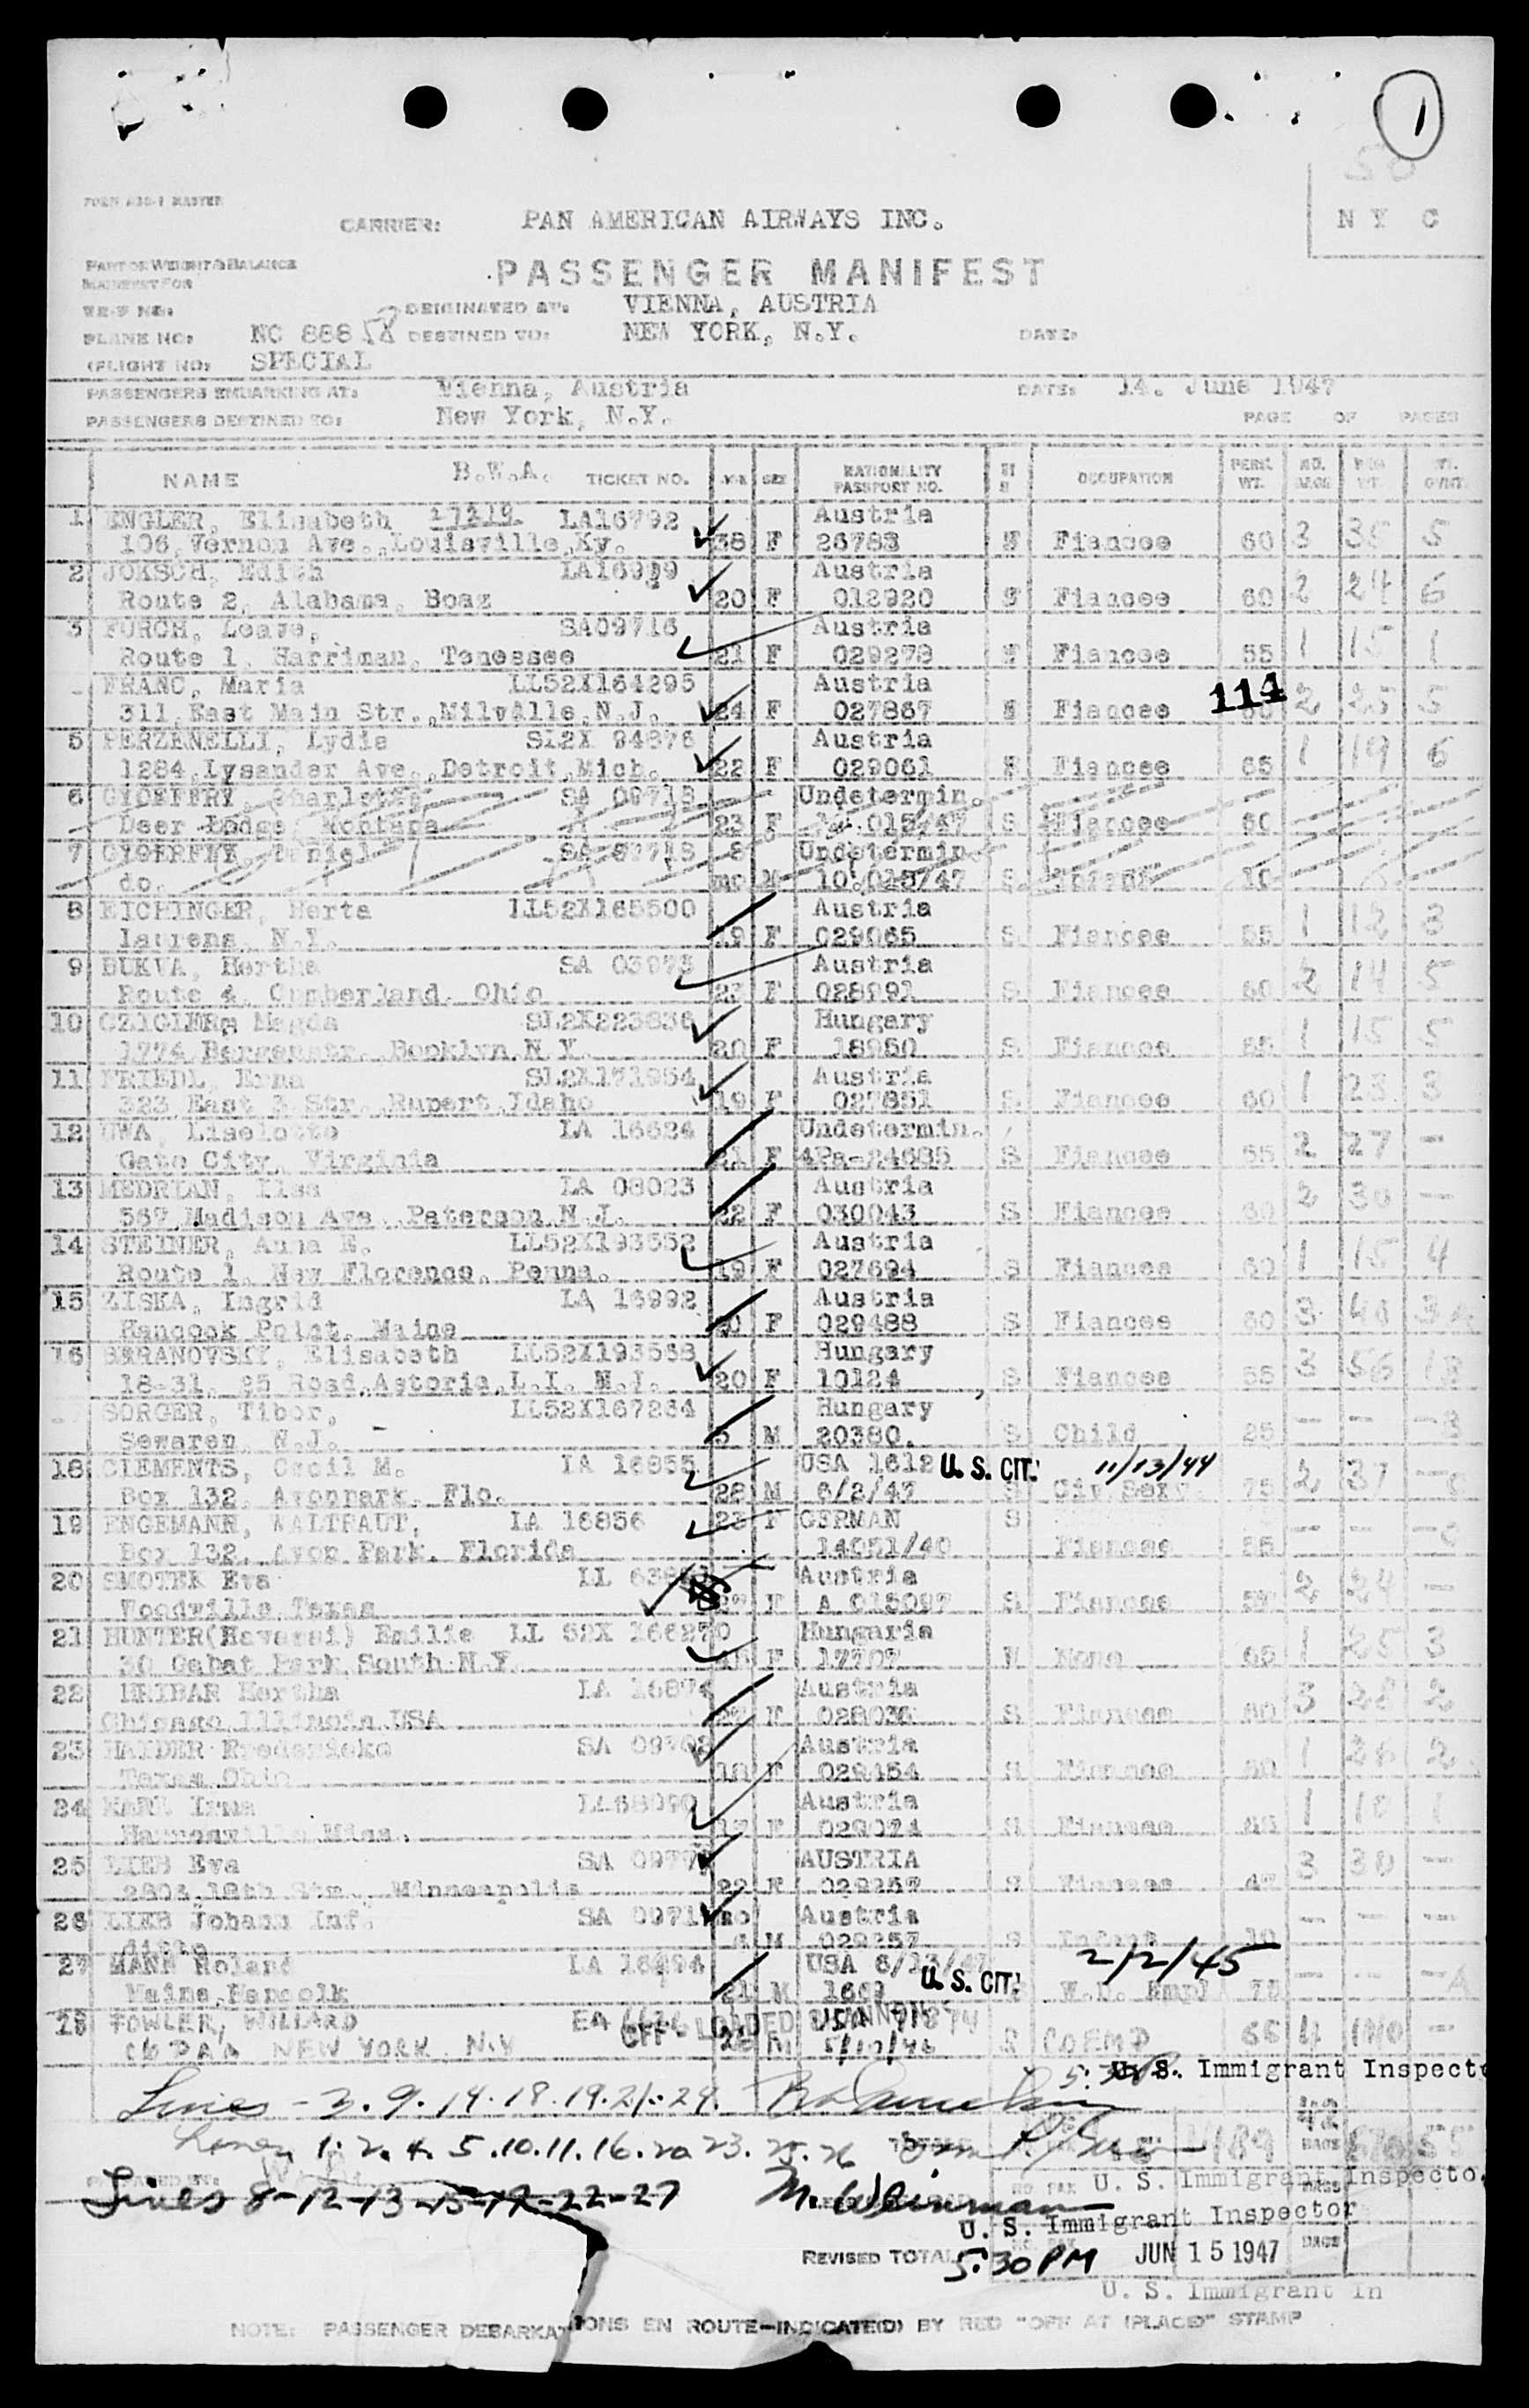 1
58
N Y C
FORM A30-1 MASTER
CARRIER: PAN AMERICAN AIRWAYS INC.
PART OF WEIGHT & BALANCE
MANIFEST FOR
PASSENGER MANIFEST
TRIP NO: ORIGINATED AT: VIENNA, AUSTRIA
PLANE NO: NC 88858 DESTINED TO: NEW YORK, N.Y. DATE:
(FLIGHT NO: SPECIAL
PASSENGERS EMBARKING AT: Vienna, Austria DATE: 14. June 1947
PASSENGERS DESTINED TO: New York, N.Y. PAGE OF PAGES
NAME B.W.A. TICKET NO. AGE SEX NATIONALITY PASSPORT NO. OCCUPATION PERS. WT. NO. BAGS BAG WT. WT. OVWT.
1 ENGLER, Elisabeth 27219 LA16792 Austria
106, Vernon Ave., Louisville, Ky. 38 F 26783 Fiancee 60 3 38 5
2 JOKSCH, Edith Austria
Route 2, Alabama, Boaz 20 F 012920 Fiancee 60 2 24 6
3 SA09716 Austria
Route 1, Harriman, Tenessee 21 F 029278 Fiancee 55 1 15 1
FRANC, Maria LL52X164295 Austria
311, East Main Str., Milville, N.J. 24 F 027867 Fiancee 114 2 25 5
5 PERZENELLI, Lydia SL2X 94876 Austria
1284, Lysander Ave., Detroit, Mich. 22 F 029061 Fiancee 65 1 19 6
6 Charlotte SA 09713 Undetermin.
Deer Lodge, Montana 23 F 015/47 S Fiancee 60
7 Daniel 8 Undetermin.
do. mo M 10.015/47 S 10
8 EICHINGER, Herta LL52X165500 Austria
laurens, N.Y. 19 F 029065 S Fiancee 55 1 12 3
9 BUKVA, Hertha SA 03973 Austria
Route 4, Cumberland, Ohio 23 F 028991 S Fiancee 60 2 14 5
10 Magda SL2X223836 Hungary
1774 Bergenstr. Booklyn, N.Y. 20 F 18950 S Fiancee 55 1 15 5
11 FRIEDL, Erna SL2X171954 Austria
323 East 3 Str., Rupert, Idaho 19 F 027851 S Fiancee 60 1 23 3
12 UWA, Liselotte LA 16624 Undetermin.
Gate City, Virginia 21 F 4Pa-24685 S Fiancee 55 2 27 -
13 MEDRIAN, Ilsa LA 08023 Austria
567 Madison Ave., Paterson N.J. 22 F 030043 S Fiancee 60 2 30 -
14 STEINER, Anna E. LL52X193552 Austria
Route 1, New Florence, Penna. 19 F 027694 S Fiancee 60 1 15 4
15 ZISKA, Ingrid LA 16992 Austria
Hancock Point, Maine F 029488 S Fiancee 60 3
16 BARANOVSKY, Elisabeth LL52X193568 Hungary
18-31, 25 Road, Astoria, L.I. N.J. 20 F 10124 S Fiancee 55 3 56 18
SORGER, Tibor, LL52X167264 Hungary
Sewaren, N.J. 5 M 20380. S Child 25 - -
18 CLEMENTS, Cecil M. LA 16855 USA 1612 U. S. CIT. 11/13/44
Box 132, Avonpark, Flo. 28 M 6/2/47 S Civ. Serv. 75 2 37
19 ENGEMANN, WALTRAUT, LA 16856 23 F GERMAN S
Box 132, Avon Park, Florida 14051/40 Fiancee 55 - -
20 SMOTEK Eva LL Austria
Woodville Texas F A 015097 S Fiancee 2 24 -
21 HUNTER(Havarsi) Emilie LL 52X 166270 Hungaria
30 Park South N.Y. F 17707 None 65 1 25 3
22 HRIBAR Hertha LA 16874 Austria
Chicago Illinois USA F S Fiancee 60 3 28 2
23 HAIDER Frederieke SA Austria
Ohio 18 F 029454 S Fiancee 50 1 26 2
24 Irma Austria
Miss. 17 F 029074 S Fiancee 1 10 1
25 LIEB Eva SA AUSTRIA
18th Str. Minneapolis 22 F 029257 S Fiancee 47 3 30 -
26 LIEB Johann Inf. SA Austria
ditto M 029257 S Infant 10 - - -
27 MANN Roland LA USA U. S. CIT. 2/2/45
Maine, Hancolk 21 M W.D. Empl 75 - -
28 FOWLER, WILLARD OFF-LOADED SHANNON USA
c/o PAA NEW YORK, N.Y. 28 M S CO EMP 4 -
U. S. Immigrant Inspecto
Lines - 3.9.14.18.19.21.24.
Lines 1.2.4.5.10.11.16.20 23.25.26
U. S. Immigrant Inspecto
Lines 8-12-13-15-17-22-27 M. Weinman
U. S. Immigrant Inspector
REVISED TOTAL 5:30 PM JUN 15 1947
U. S. Immigrant In
NOTE: PASSENGER DEBARKATIONS EN ROUTE—INDICATE(D) BY RED "OFF AT (PLACE)" STAMP